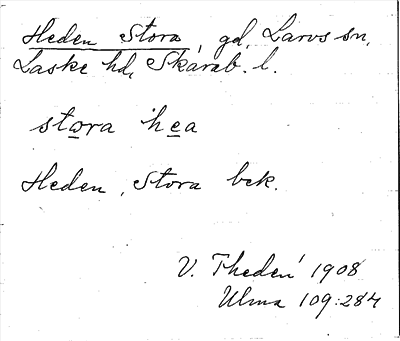 Heden Stora, gd, Larvs sn,
Laske hd, Skarab. l.
stora hea
Heden, Stora bek.
V. Thedén 1908
Ulma 109:284